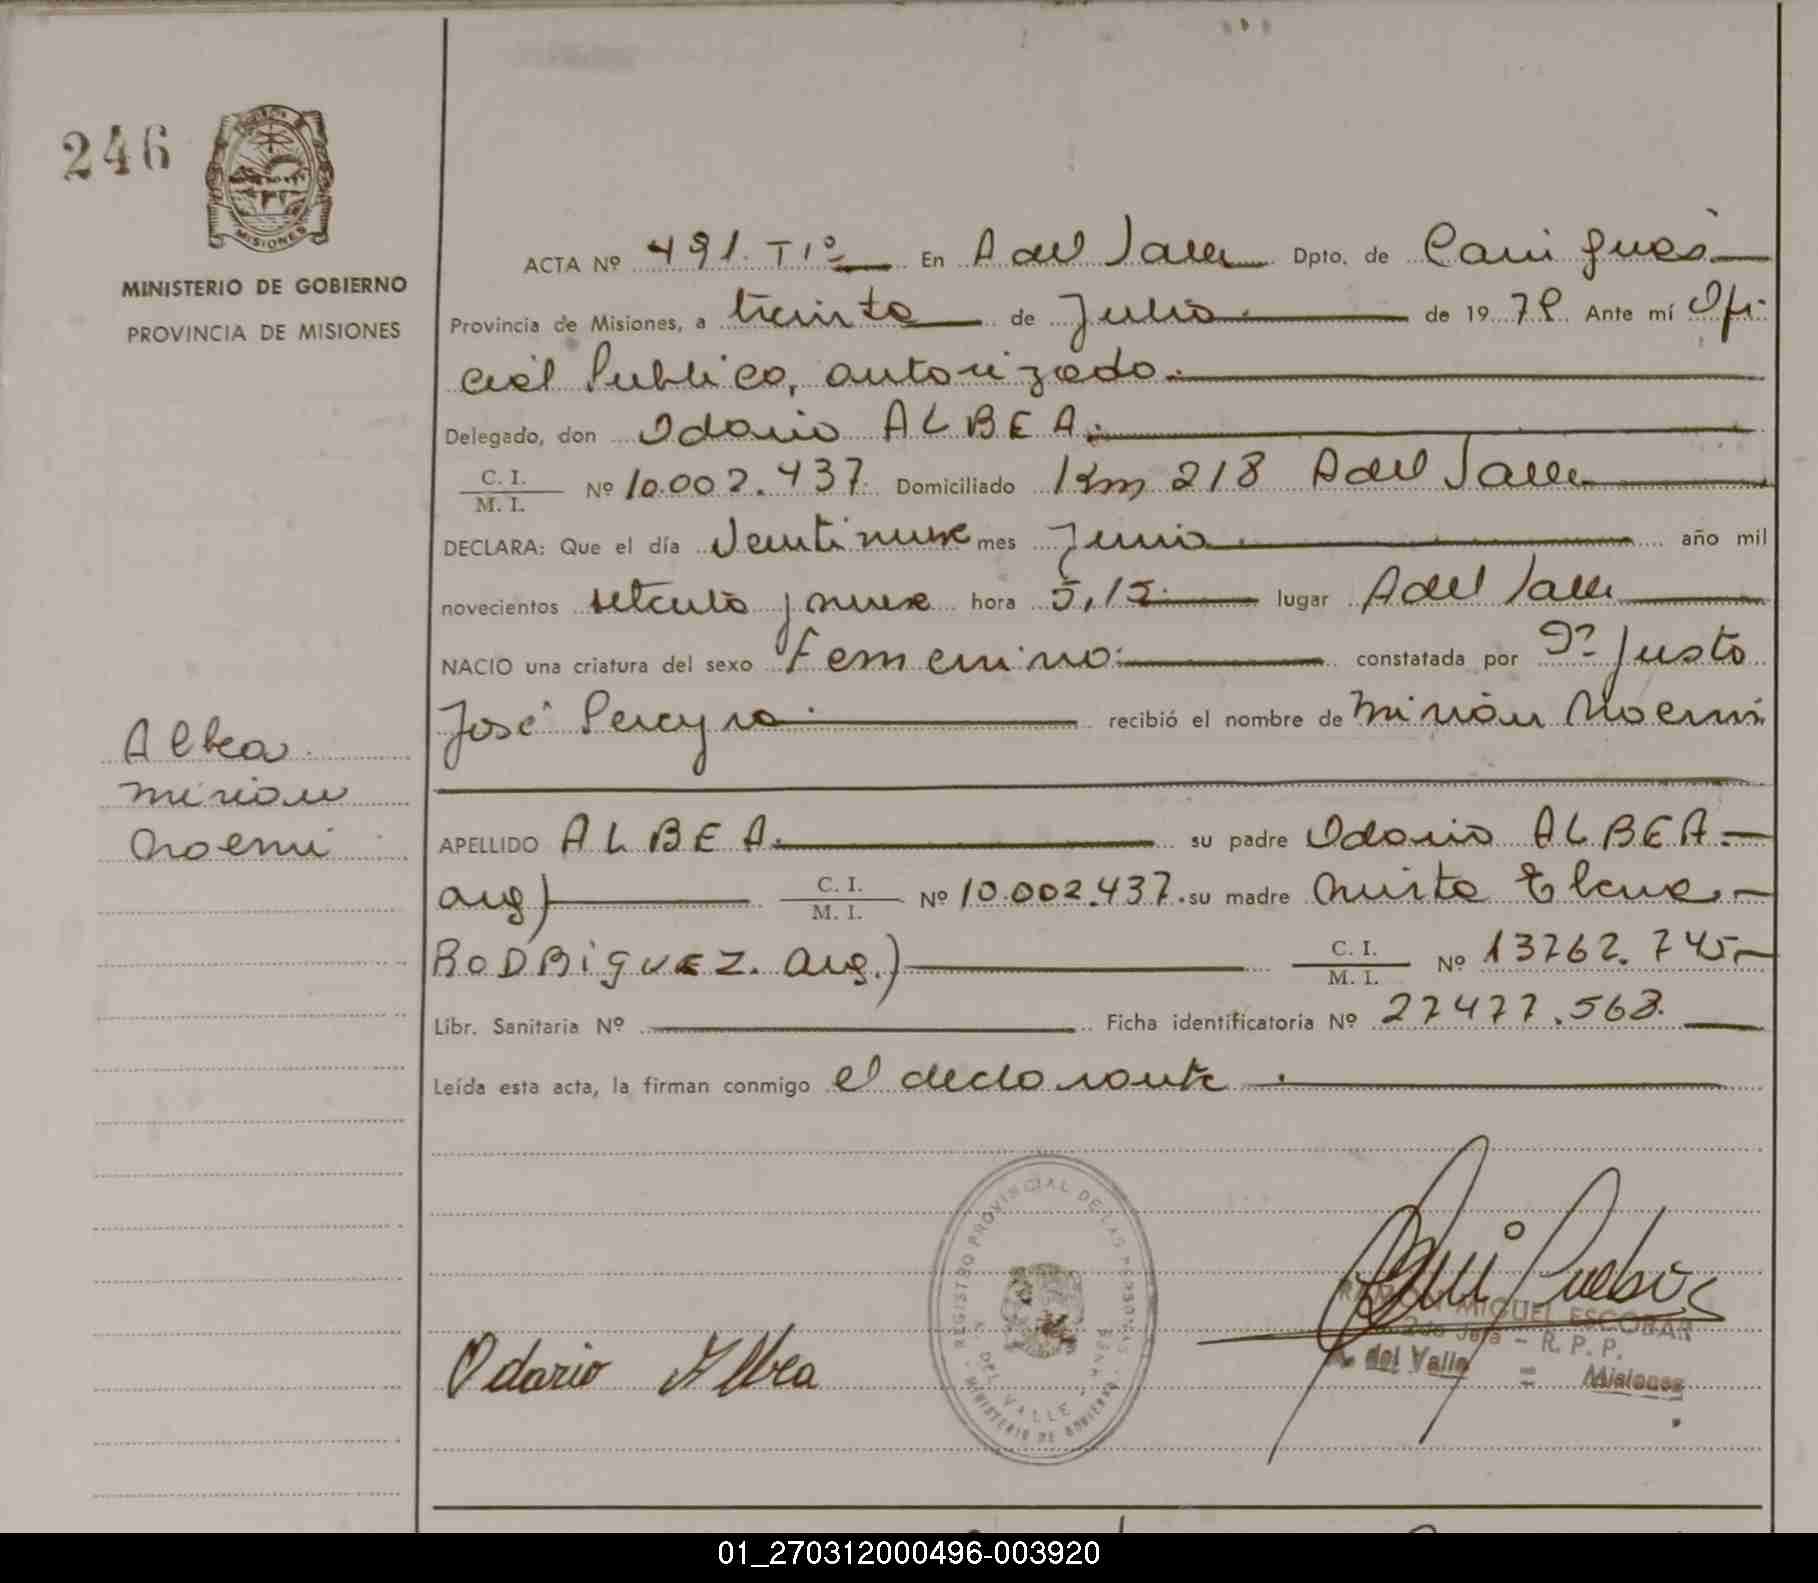 246
MISIONES
MINISTERIO DE GOBIERNO
PROVINCIA DE MISIONES
ACTA Nº 491. T 1º En A del Valle Dpto. de Cainguás
Provincia de Misiones, a treinta de Julio de 19 79 Ante mí Ofi-
cial Publico, autorizado.
Delegado, don Odario ALBEA.
C. I.
M. I. Nº 10.002.437. Domiciliado Km 218 A del Valle
DECLARA: Que el día Veintinueve mes Junio año mil
novecientos setenta y nueve hora 5,15 lugar A del Valle
NACIO una criatura del sexo Femenino. constatada por Justo
José Pereyra recibió el nombre de Mirian Noemi
Albea
Mirian
Noemi
APELLIDO ALBEA. su padre Odario ALBEA.
arg) C. I.
M. I. Nº 10.002.437. su madre Mirta Elena
RODRIGUEZ. arg.) C. I.
M. I. Nº 13262.745
Libr. Sanitaria Nº Ficha identificatoria Nº 27477.568.
Leída esta acta, la firman conmigo el declarante.
REGISTRO PROVINCIAL DE LAS PERSONAS
DEL VALLE
MINISTERIO DE GOBIERNO
Odario Albea
RAMON MIGUEL ESCOBAR
2do Jefe - R. P. P.
A. del Valle = Misiones
01_270312000496-003920